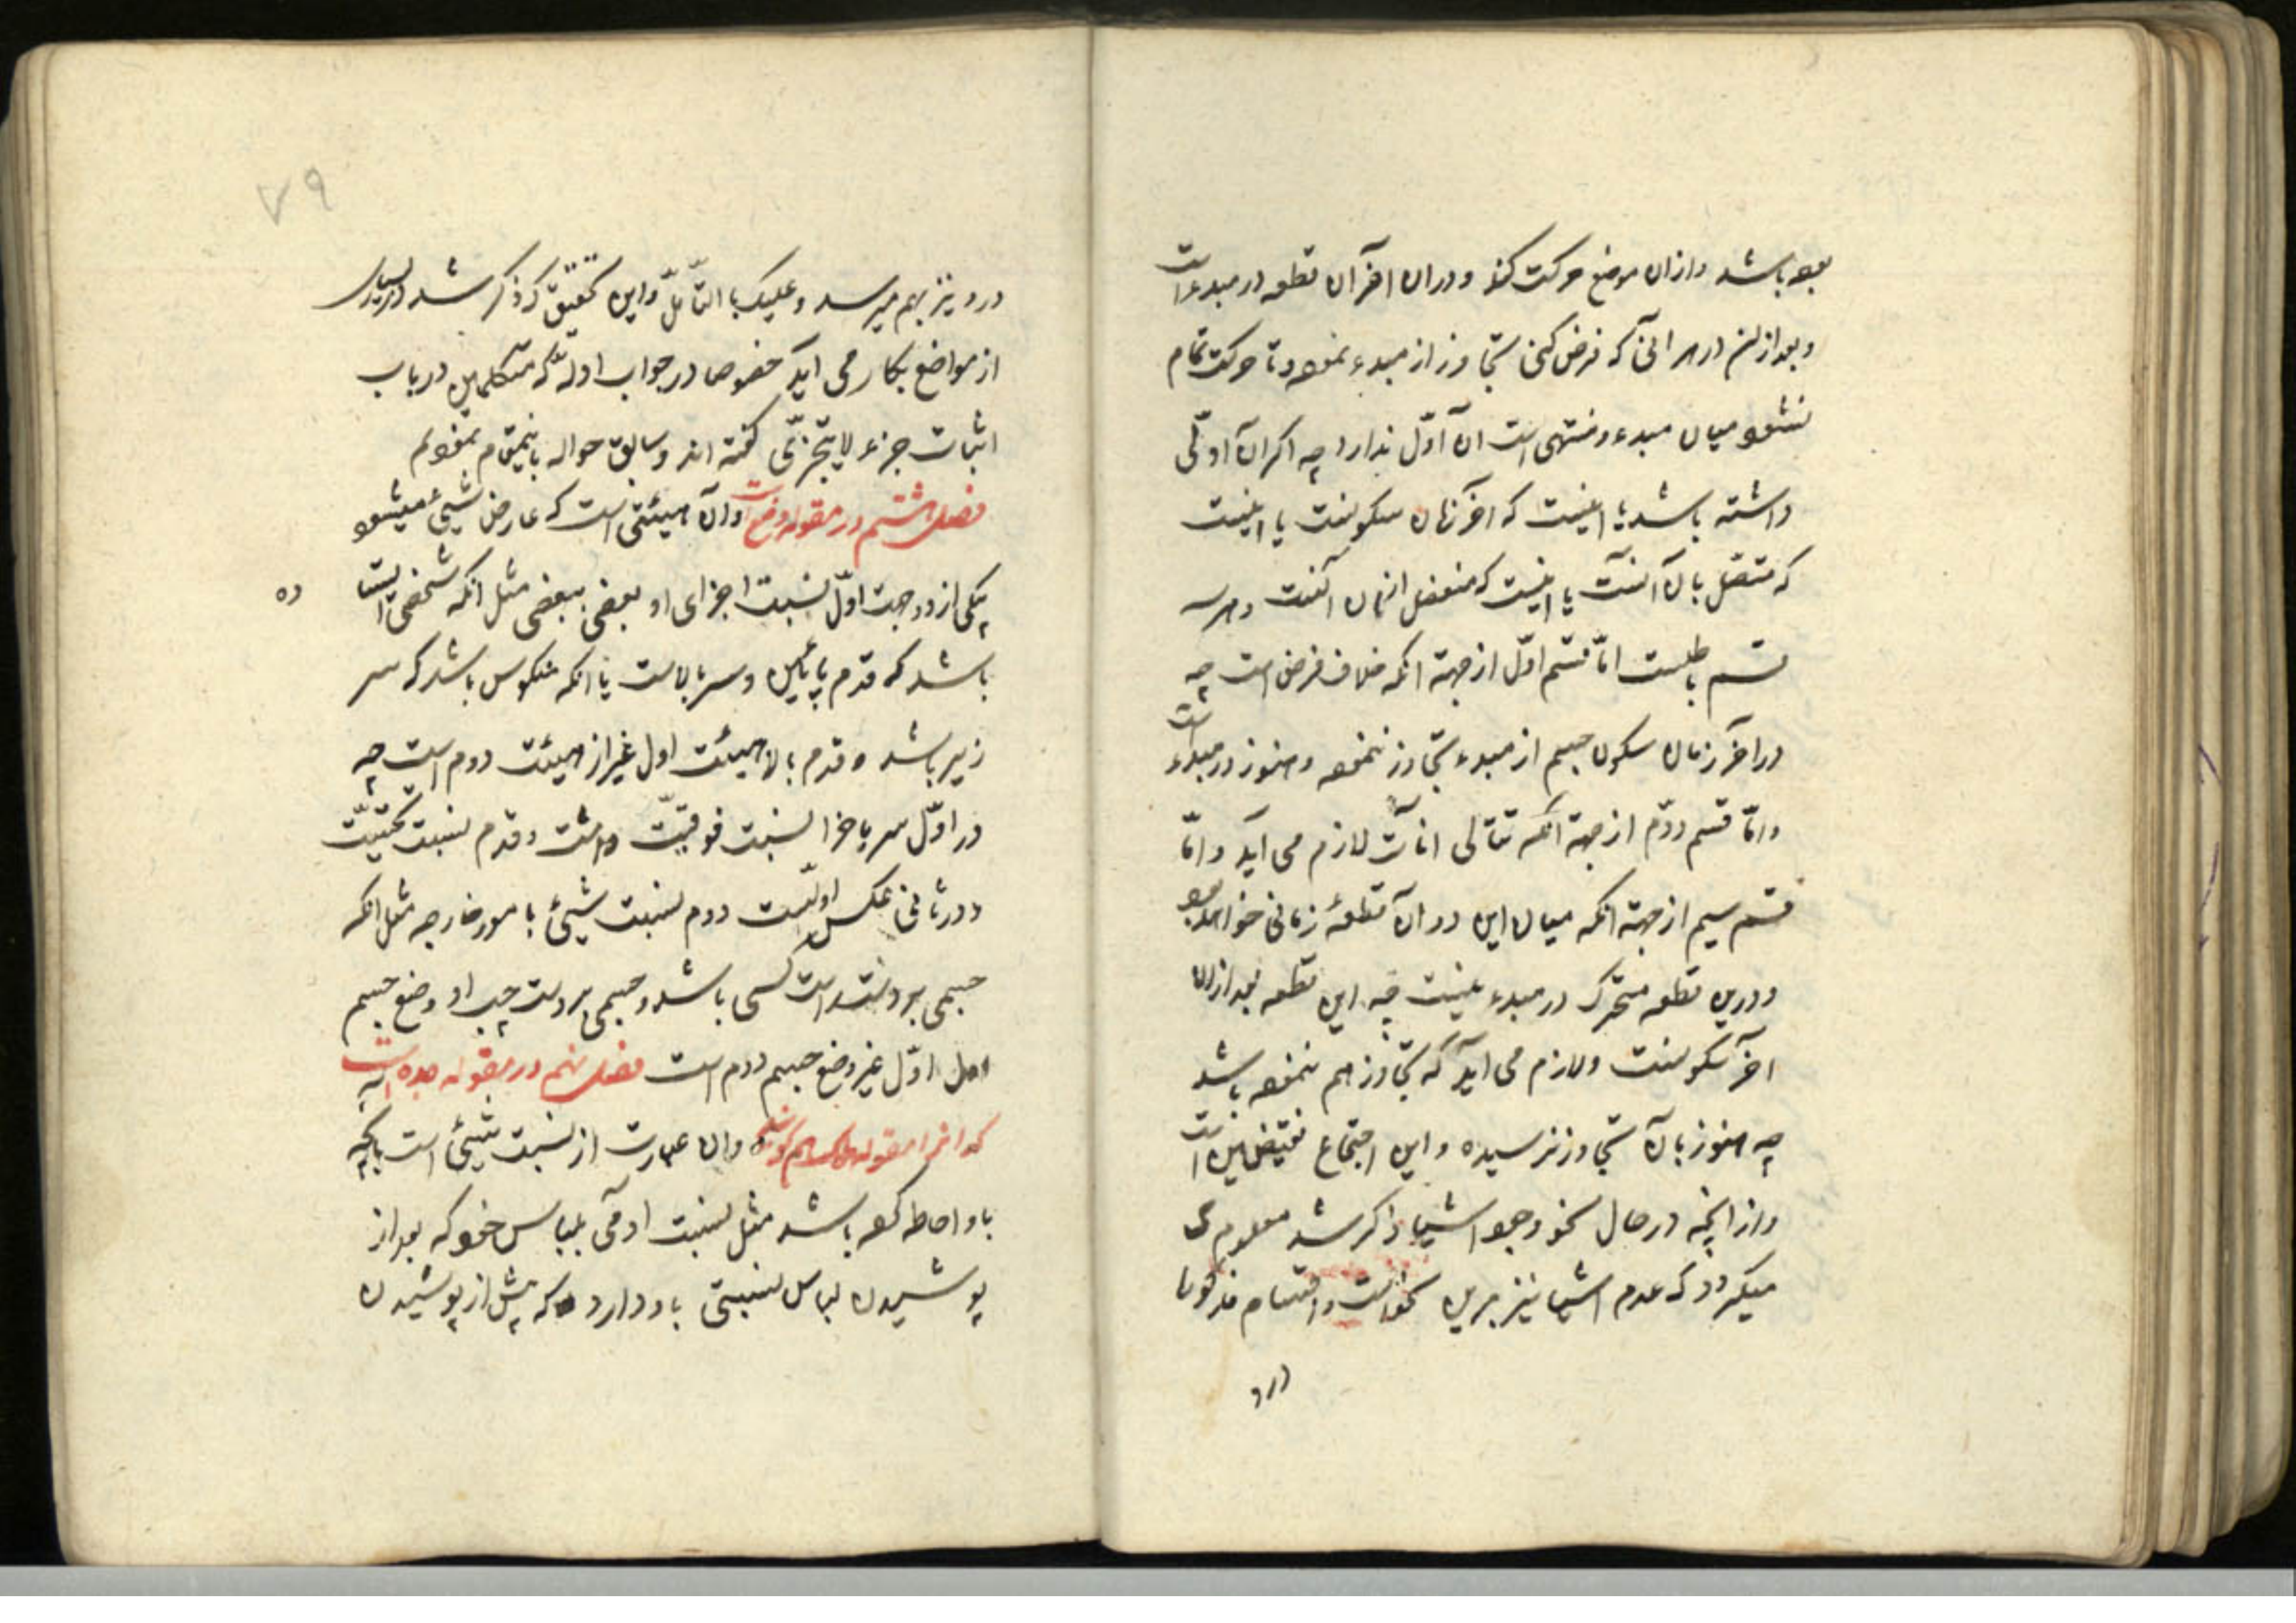 بوده باشد و ازان موضع حرکت کند و دران آخر آن قطعه در مبدء است
و بعد از ان در هر آنی که فرض کنی تجاوز از مبدء نموده و تا حرکت تمام
نشود میان مبدء و منتهی است ان آن اوّل ندارد چه اگر ان آن اوّلی
داشته باشد یا انیست که آخر زمان سکونست یا انیست
که متصّل بان آنست یا انیست که منفصل ازان آنست و هر سه
قسم باطلست امّا قسم اوّل از جهة انکه خلاف فرض است چه
در آخر زمان سکون جسم از مبدء تجاوز ننموده و هنوز در مبدء است
و امّا قسم دوّم از جهة انکه تتالی انات لازم می آید و امّا
قسم سیم از جهة انکه میان این دو آن قطعهٔ زمانی خواهد بود
و درین قطعه متحرک در مبدء نیست چه این قطعه بعد ازان
آخر سکونست و لازم می آید که تجاوز هم ننموده باشد
چه هنوز بان تجاوز نرسیده و این اجتماع نقیضین است
و از انچه در حال نحو وجود اشیا ذکر شد معلوم
میکردد که عدم اشیا نیز برین نحو است و اقسام مذکوره
در و
۷۹
در و نیز بهم میرسد و علیک بالتأمّل و این تحقیق که ذکر شد در بسیاری
از مواضع بکار می آید خصوصا در جواب ادلّه که متکلمین در باب
اثبات جزء لا یتجزّی گفته اند و سابق حواله باینمقام نمودم
فصل هشتم در مقوله وضع است و آن هیئتی است که عارض شیئ میشود
یکی از دو جهت اوّل نسبت اجزای او بعضی ببعضی مثل انکه شخصی ایستا
ده
باشد که قدم پایین و سر بالاست یا انکه منکوس باشد که سر
زیر باشد و قدم بالا هیئت اول غیر از هیئت دوم است چه
در اوّل سر با جزا نسبت فوقیّت داشت و قدم نسبت تحتیّت
و در ثانی عکس اولست دوم نسبت شیئ با مور خارجه مثل انکه
جسمی بر دست راست کسی باشد و جسمی بر دست چپ او وضع جسم
اوّل غیر وضع جسم دوم است فصل نهم در مقوله جده است
که انرا مقوله ملک هم گویند و ان عبارت از نسبت شیئ است بانچه
باو احاطه کرده باشد مثل نسبت ادمی بلباس خود که بعد از
پوشیدن لباس نسبتی باو دارد که پیش از پوشیدن